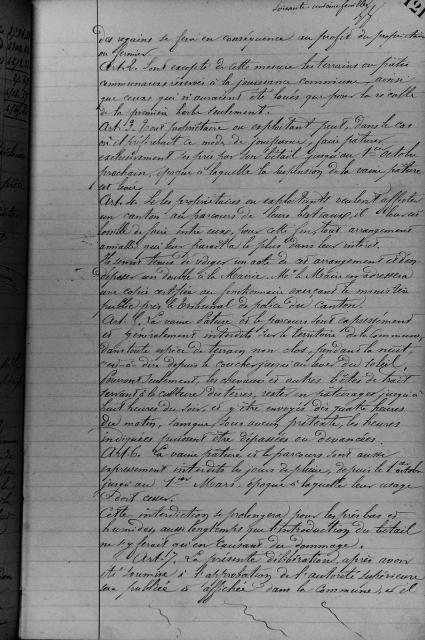 soixante-unième feuillet
121
des regains se fera en conséquence au profit du propriétaire
ou fermier.
Art. 2. Sont exceptés de cette mesure les terrains ou prétés
communaux réservés à la jouissance commune, ainsi
que ceux qui n'auraient été loués que pour la récolte
de la première herbe seulement.
Art. 3. Tout propriétaire ou exploitant peut, dans le cas
où il préférait ce mode de jouissance, faire paturer
exclusivement les prés par son bétail jusqu'au 1er Octobre
prochain, époque à laquelle la suspension de la vaine pature
est levée.
Art. 4. Si les propriétaires ou exploitants veulent affecter
un canton au parcours de leurs bestiaux, il leur est
loisible de faire entre eux, pour cette fin, tout arrangement
amiable qui leur paraîtra le plus dans leur intérêt.
Ils seront tenus de rédiger un acte de cet arrangement et d'en
déposer un double à la Mairie. Mr le Maire en adressera
une copie certifiée au fonctionnaire exerçant le ministère
public près le tribunal de police du Canton.
Art. 5. La vaine Pature et le parcours sont expressément
et généralement interdits sur le territoire de la Commune,
dans toute espèce de terrain non clos, pendant la nuit,
c'est-à-dire depuis le coucher jusqu'au lever du soleil.
Pourront seulement, les chevaux et autres bêtes de trait
servant à la culture des terres, rester en paturages jusqu'à
huit heures du soir, et y être envoyés dès quatre heures
du matin, sans que, sous aucun prétexte, les heures
indiquées puissent être dépassées ou devancées.
Art. 6. La vaine pature et le parcours sont aussi
expressément interdits les jours de pluie, depuis le 1er octobre
jusqu'au 1er Mars, époque à laquelle leur usage
doit cesser.
Cette interdiction se prolongera pour les prés bas et
humides, aussi longtemps que l'introduction du bétail
ne s'y ferait qu'en causant du dommage.
Art. 7. La présente délibération, après avoir
été soumise à l'approbation de l'autorité supérieure
sera publiée et affichée dans la commune, et il